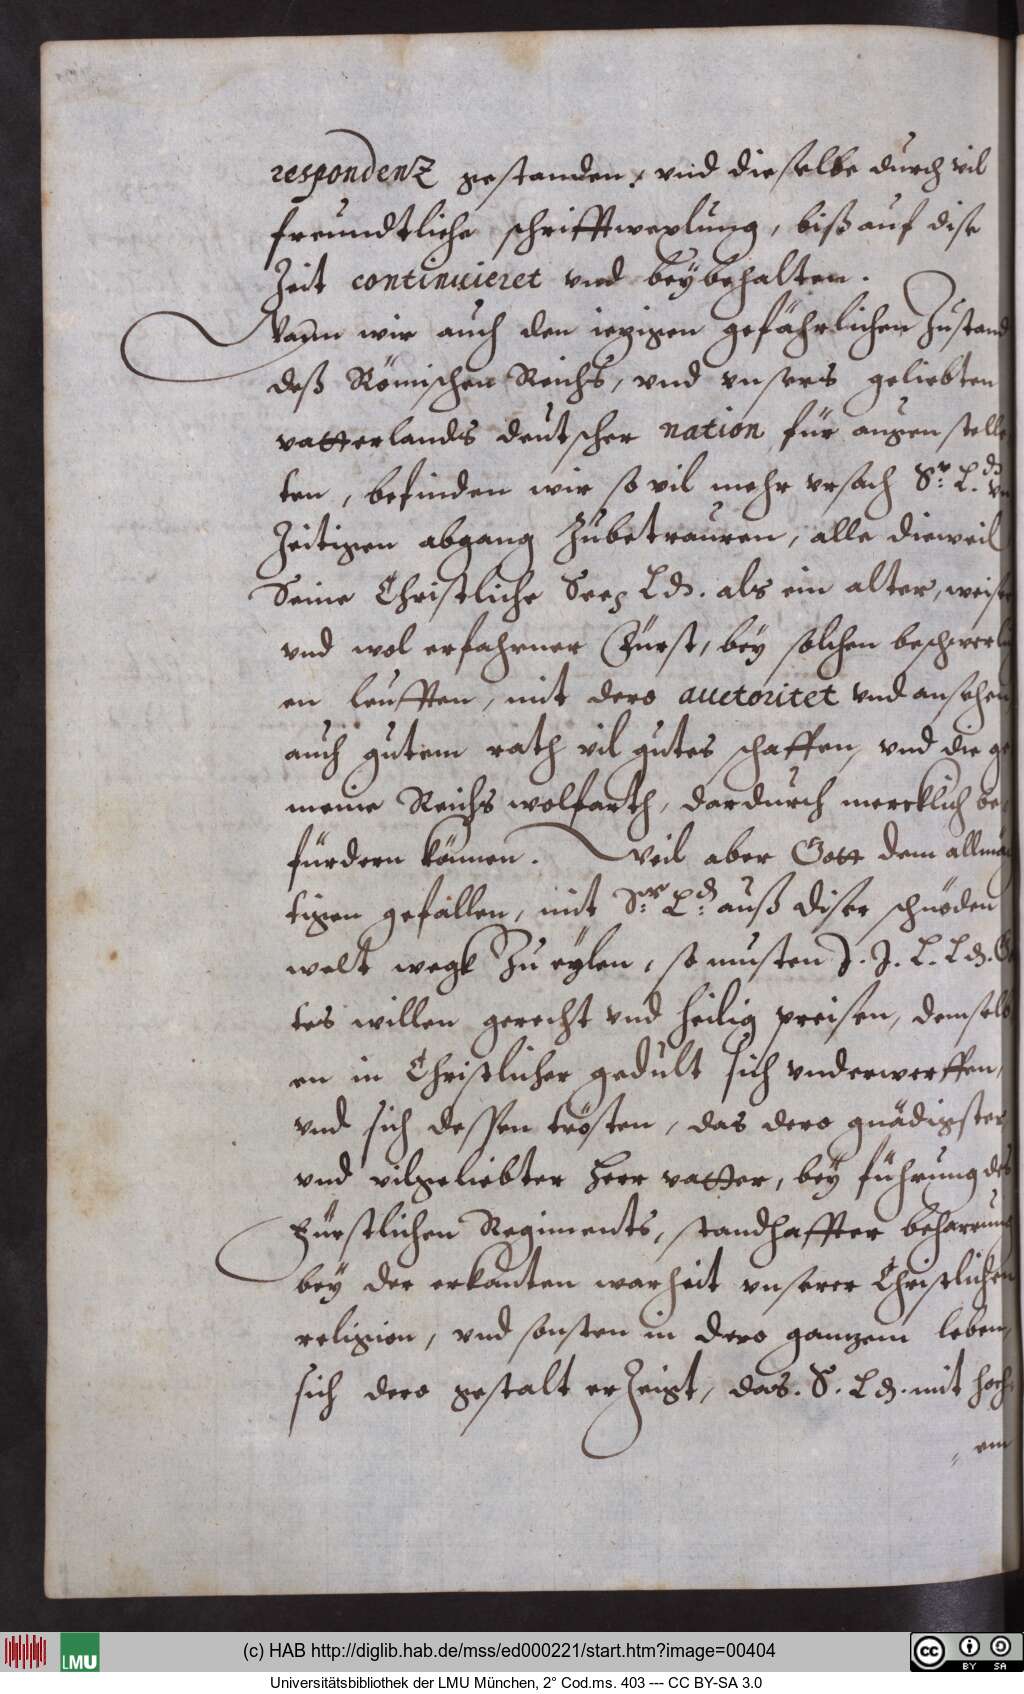 respondenz gestanden, vnd dieselbe durch vil
freundtliche schrifftwexlung, biß auf dise
Zeit continuieret vnd beybehalten.
Wann wir auch den iezigen gefährlichen Zustand
deß Römischen Reichs, vnd vnsers geliebten
vatterlands deutscher nation für augen stelle
ten, befinden wir so vil mehr vrsach Sr. L.d. vn
Zeitigen abgang Zubetrauren, alle dieweil
Seine Christliche Seel: Ld. als ein alter, weiser
vnd wol erfahrner Fürst, bey solchen beschwerli
en leufften, mit dero auctoritet vnd ansehen
auch gutem rath vil gutes schaffen, vnd die ge
meine Reichs wolfarth, dardurch mercklich be
fürdern können. Weil aber Gott dem allmäch
tigen gefallen, mit Sr. L.d. auß diser schnöden
welt wegk Zu eylen, so musten J. J. L. Ld. Got
tes willen gerecht vnd heilig preisen, demselb
en in Christlicher gedult sich vnderwerffen,
vnd sich dessen trösten, das dero gnädigster
vnd vilgeliebter Herr vatter, bey führung des
Fürstlichen Regiments, standhaffter beharrung
bey der erkanten warheit vnserer Christlichen
religion, vnd sonsten in dero ganzem leben,
sich dero gestalt erZeigt, das S. Ld. mit hoch
em
(c) HAB http://diglib.hab.de/mss/ed000221/start.htm?image=00404
LMU
cc BY SA
Universitätsbibliothek der LMU München, 2° Cod.ms. 403 --- CC BY-SA 3.0